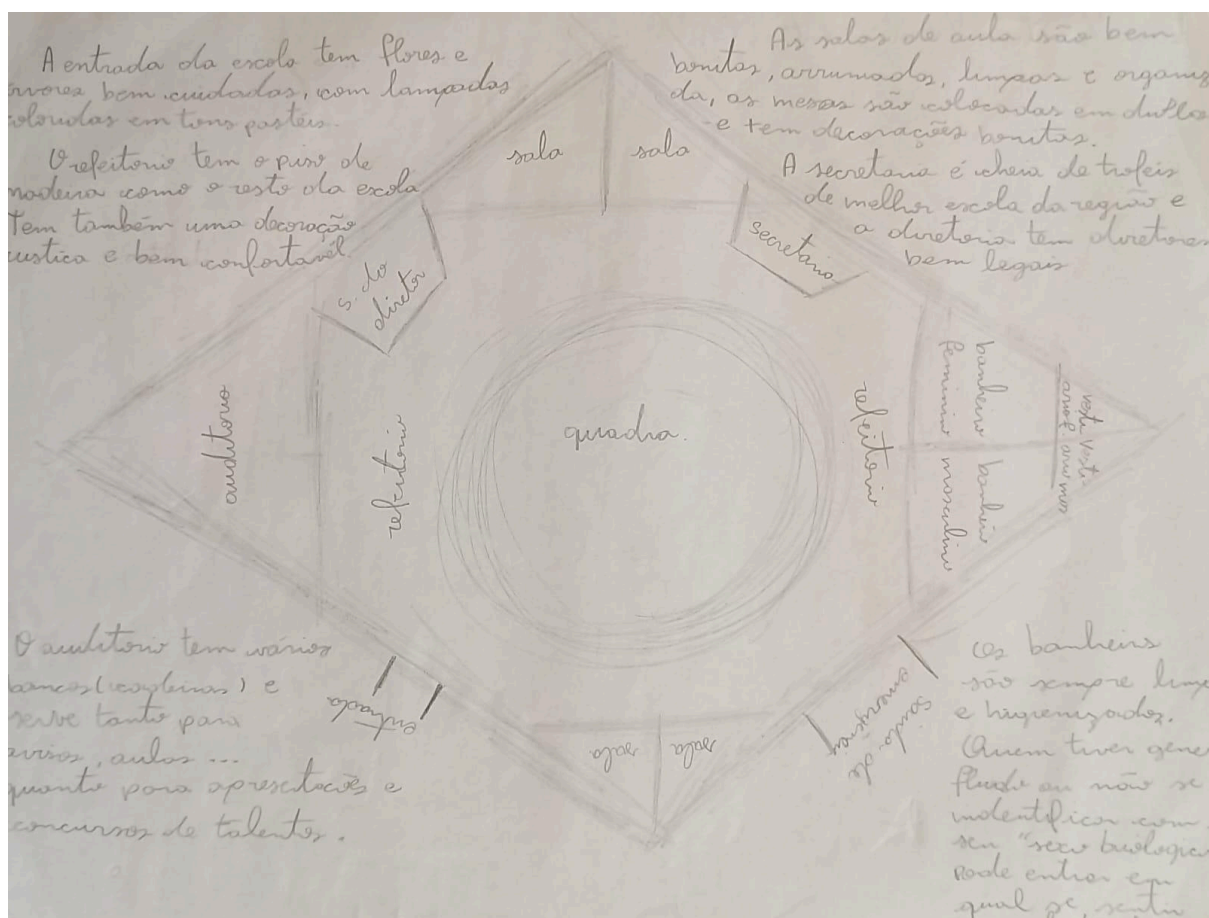 A entrada da escola tem flores e
bem cuidadas, com lampadas
coloridas em tons pastéis.
O refeitorio tem o piso de
madeira como o resto da escola
Tem também uma decoração
rustica e bem confortavél.
As salas de aula são bem
bonitas, arrumadas, limpas e organiza
da, as mesas são colocadas em duplas
e tem decorações bonitas.
A secretaria é cheia de trofeis
de melhor escola da região e
a diretoria tem diretores
bem legais
sala
sala
s. do
diretor
secretaria
auditorio
refeitorio
quadra.
refeitorio
banheiro
feminino
banheiro
masculino
entrada
sala
sala
Saída de
emergência
O auditorio tem vários
bancos (cadeiras) e
serve tanto para
avisos, aulas ...
quanto para apresentações e
concursos de talentos.
Os banheiros
são sempre limpos
e higienizados.
Quem tiver gene
fluido ou não se
indentificar com
seu "sexo biologico
pode entrar em
qual se sentir